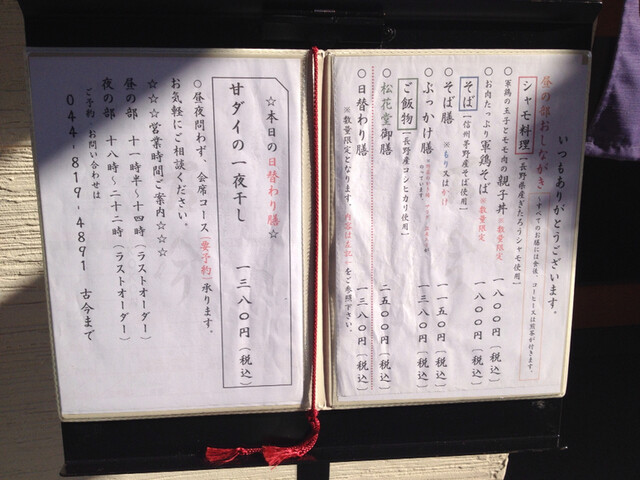 いつもありがとうございます。
昼の部おしながき ～すべてのお膳には食後、コーヒー又は煎茶が付きます。
シャモ料理【長野県産ぎたろうシャモ使用】
○軍鶏の玉子とモモ肉の親子丼 ※数量限定 一八〇〇円〔税込〕
○お肉たっぷり軍鶏そば ※数量限定 一八〇〇円〔税込〕
そば【信州茅野産そば使用】
○そば膳 ※もり又はかけ 一一五〇円〔税込〕
○ぶっかけ膳 一三八〇円〔税込〕
ご飯物【長野産コシヒカリ使用】
○松花堂御膳 二五〇〇円〔税込〕
○日替わり膳 一三八〇円〔税込〕
※数量限定となります。内容は左記をご参照下さい。
☆本日の日替わり膳☆
甘ダイの一夜干し
一三八〇円（税込）
○昼夜問わず、会席コース【要予約】承ります。
お気軽にご相談ください。
☆☆☆営業時間ご案内☆☆☆
昼の部 十一時半～十四時（ラストオーダー）
夜の部 十八時～二十二時（ラストオーダー）
ご予約 お問い合わせは
044-819-4891 古今まで